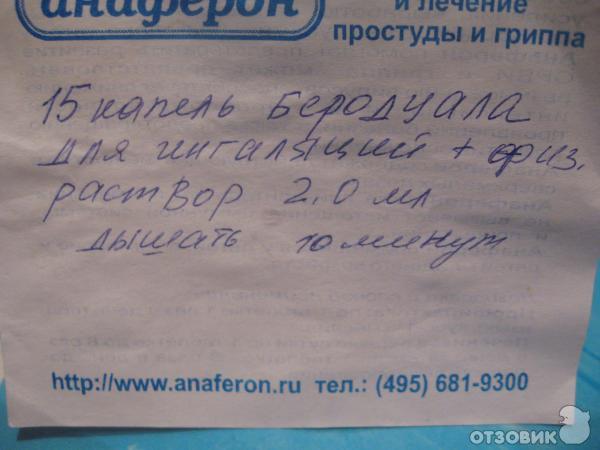 анаферон
и лечение
простуды и гриппа
15 капель Беродуала
для ингаляций + физ.
раствор 2.0 мл
дышать 10 минут
http://www.anaferon.ru тел.: (495) 681-9300
ОТЗОВИК